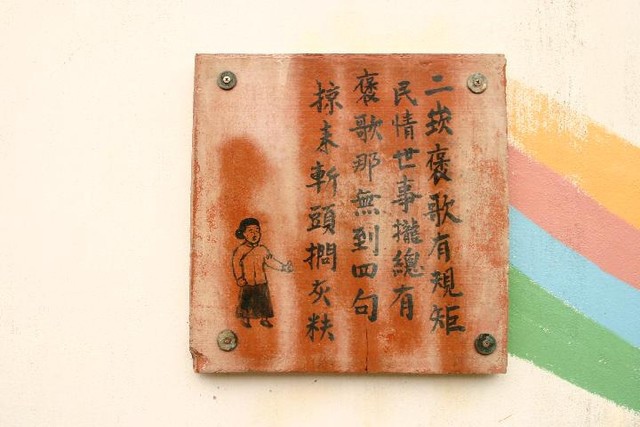 二崁褒歌有規矩
民情世事攏總有
褒歌那無到四句
掠來斬頭擱灰粏